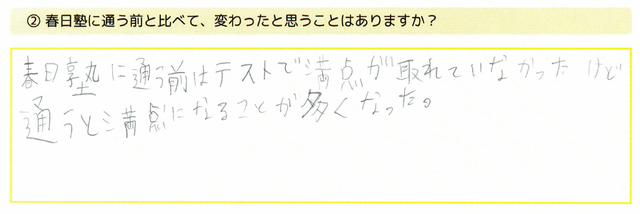 ② 春日塾に通う前と比べて、変わったと思うことはありますか？
春日塾に通う前はテストで満点が取れていなかったけど
通うと満点になることが多くなった。